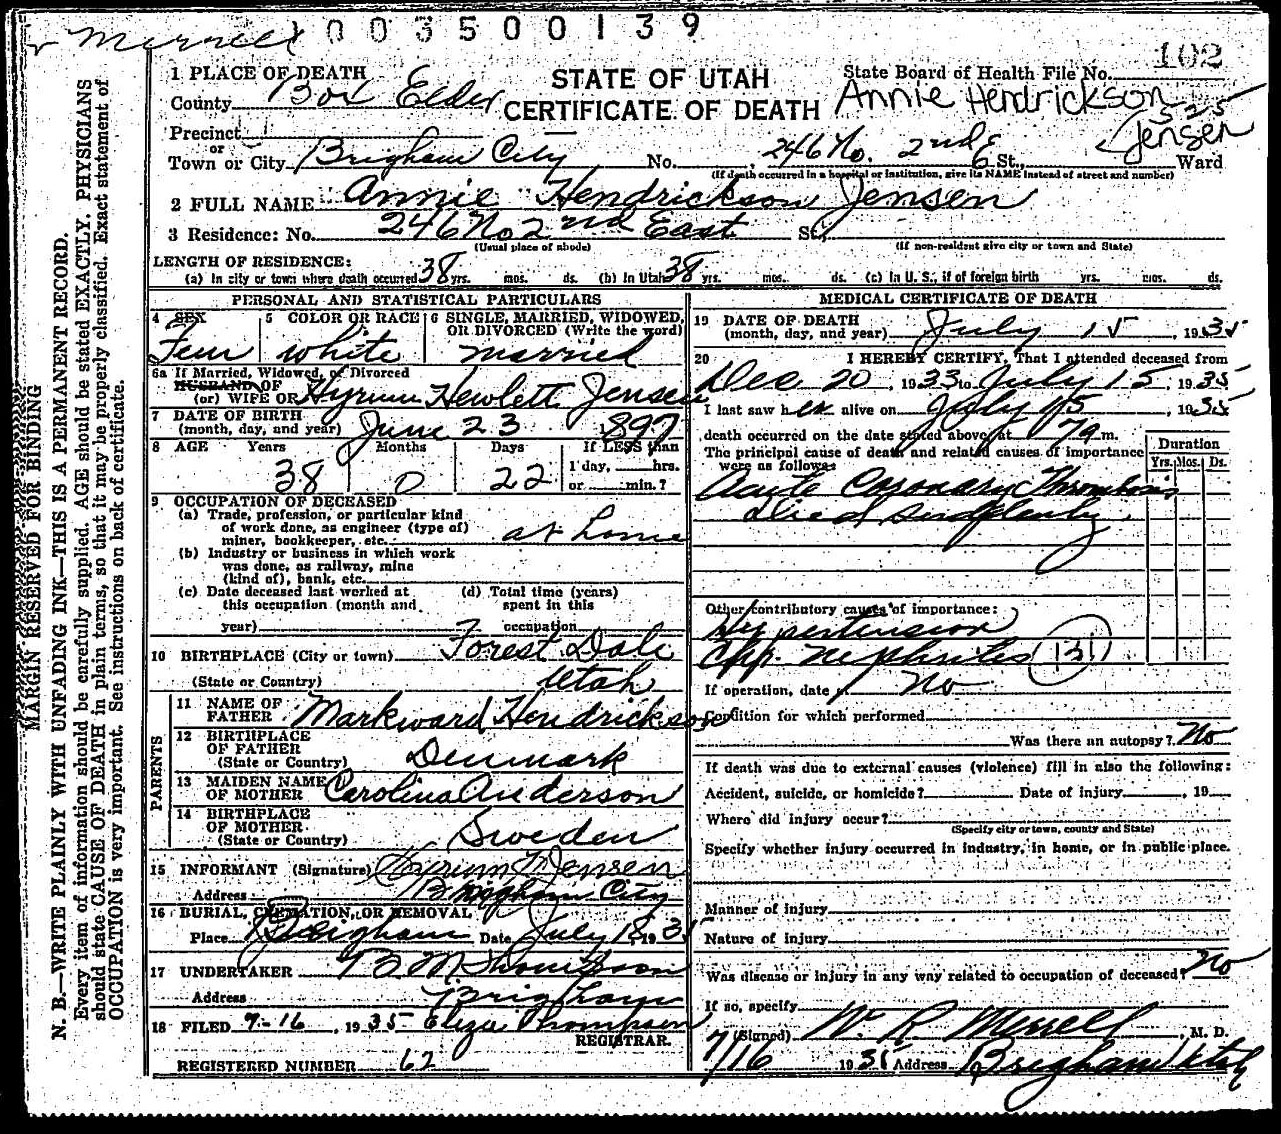 Merrell 1003500139
102
1 PLACE OF DEATH
STATE OF UTAH
State Board of Health File No.
County Box Elder
CERTIFICATE OF DEATH
Annie Hendrickson
Jensen
Precinct
or
Town or City Brigham City No. 246 No. 2nd E St., Ward
(If death occurred in a hospital or institution, give its NAME instead of street and number)
2 FULL NAME Annie Hendrickson Jensen
3 Residence: No. 246 No 2nd East St.,
(Usual place of abode) (If non-resident give city or town and State)
LENGTH OF RESIDENCE:
(a) In city or town where death occurred 38 yrs. mos. ds. (b) In Utah 38 yrs. mos. ds. (c) In U. S., if of foreign birth yrs. mos. ds.
PERSONAL AND STATISTICAL PARTICULARS
4 SEX 5 COLOR OR RACE 6 SINGLE, MARRIED, WIDOWED, OR DIVORCED (Write the word)
Fem white married
6a If Married, Widowed, or Divorced
HUSBAND OF
(or) WIFE OF Hyrum Hewlett Jensen
7 DATE OF BIRTH
(month, day, and year) June 23 1897
8 AGE Years Months Days If LESS than
1 day, hrs.
38 0 22 or min.?
9 OCCUPATION OF DECEASED
(a) Trade, profession, or particular kind
of work done, as engineer (type of)
miner, bookkeeper, etc. at home
(b) Industry or business in which work
was done, as railway, mine
(kind of), bank, etc.
(c) Date deceased last worked at
this occupation (month and
year)
(d) Total time (years)
spent in this
occupation
10 BIRTHPLACE (City or town) Forest Dale
(State or Country) Utah
PARENTS
11 NAME OF
FATHER Markward Hendrickson
12 BIRTHPLACE
OF FATHER
(State or Country) Denmark
13 MAIDEN NAME
OF MOTHER Carolina Anderson
14 BIRTHPLACE
OF MOTHER
(State or Country) Sweden
15 INFORMANT (Signature) Hyrum H Jensen
Address Brigham City
16 BURIAL, CREMATION, OR REMOVAL
Place Brigham Date July 18, 1935
17 UNDERTAKER B M Thompson
Address Brigham
18 FILED 7-16, 1935 Eliza Thompson
REGISTRAR.
REGISTERED NUMBER 62
MEDICAL CERTIFICATE OF DEATH
19 DATE OF DEATH
(month, day, and year) July 15, 1935
20 I HEREBY CERTIFY, That I attended deceased from
Dec 20, 1933 to July 15, 1935
I last saw her alive on July 15, 1935
death occurred on the date stated above, at 7 a m.
The principal cause of death and related causes of importance
were as follows:
Duration
Yrs. Mos. Ds.
Acute Coronary Thrombosis
died suddenly
Other contributory causes of importance:
Hypertension
Chr. Nephritis 131
If operation, date of No
Condition for which performed
Was there an autopsy? No
If death was due to external causes (violence) fill in also the following:
Accident, suicide, or homicide? Date of injury , 19
Where did injury occur?
(Specify city or town, county and State)
Specify whether injury occurred in industry, in home, or in public place.
Manner of injury
Nature of injury
Was disease or injury in any way related to occupation of deceased? No
If so, specify
(Signed) W. R. Merrell, M. D.
7/16 1935 Address Brigham Utah
MARGIN RESERVED FOR BINDING
N. B.—WRITE PLAINLY WITH UNFADING INK—THIS IS A PERMANENT RECORD.
Every item of information should be carefully supplied. AGE should be stated EXACTLY. PHYSICIANS
should state CAUSE OF DEATH in plain terms, so that it may be properly classified. Exact statement of
OCCUPATION is very important. See instructions on back of certificate.